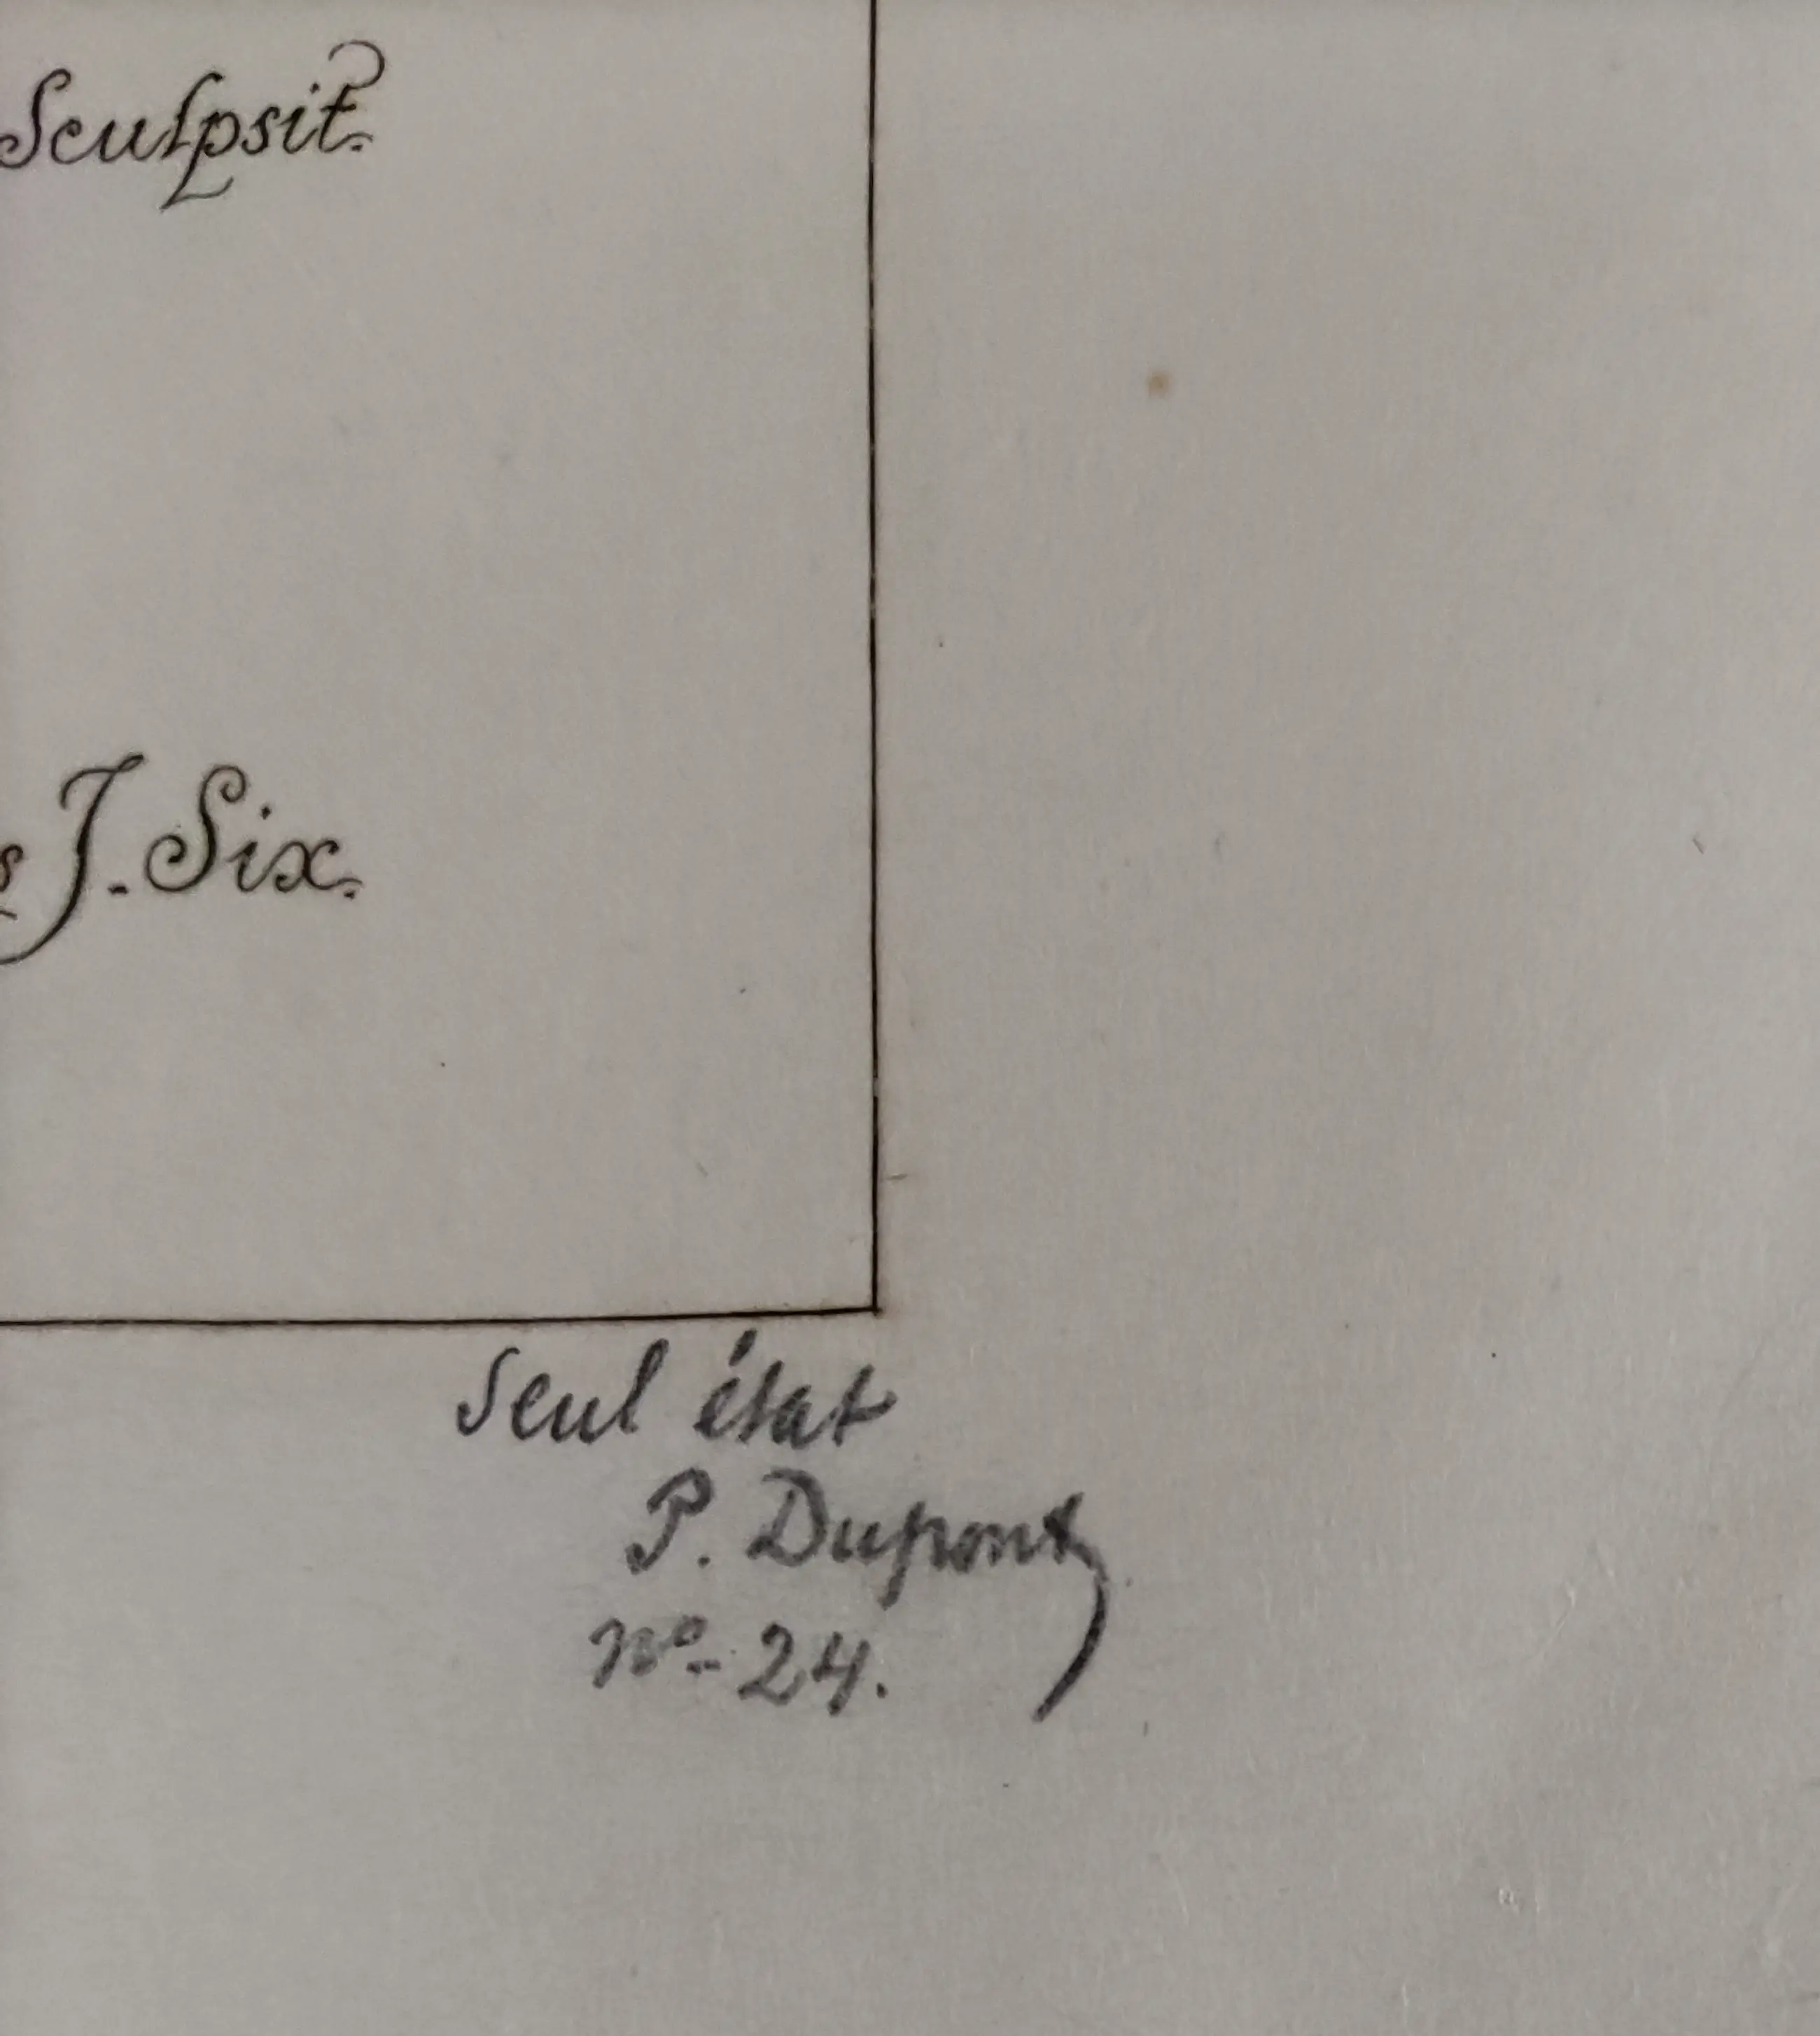 Sculpsit.
s J. Six.
Seul état
P. Dupont
no 24.